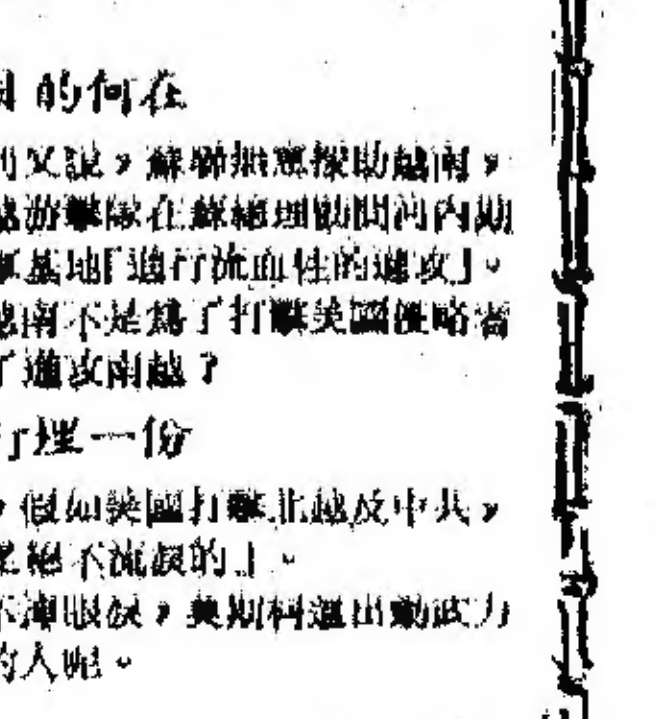 的何在
又說，蘇聯無意援助越南，
游擊隊在蘇總理訪問河內期
基地「進行流血性的進攻」。
越南不是爲了打擊美國侵略者
了進攻南越？
行埋一份
，假如美國打擊北越及中共，
絕不流淚的」。
不揮眼淚，美斯柯還出動武力
的人呢。